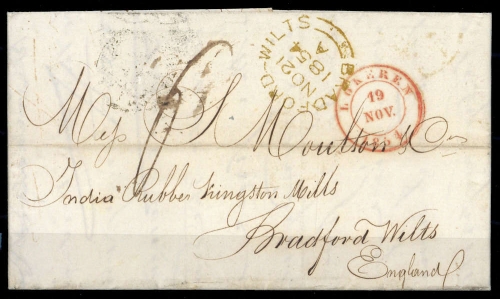 BRADFORD-WILTS
A
NO 21
1854
LOKEREN
19
NOV.
1854
6
Mess S. Moulton & Co
India Rubber Kingston Mills
Bradford Wilts
England